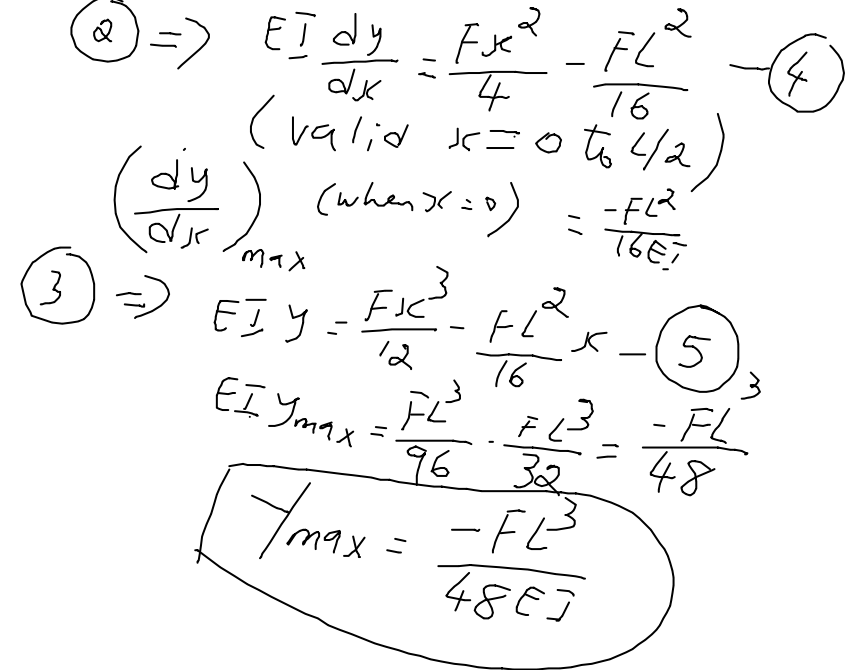 ② => EI dy/dx = Fx²/4 - FL²/16 - ④
(valid x = 0 to L/2)
(dy/dx)max (when x = 0) = -FL²/16EI
③ => EI y = Fx³/12 - FL²/16 x - ⑤
EI ymax = FL³/96 - FL³/32 = -FL³/48
Ymax = -FL³/48EI